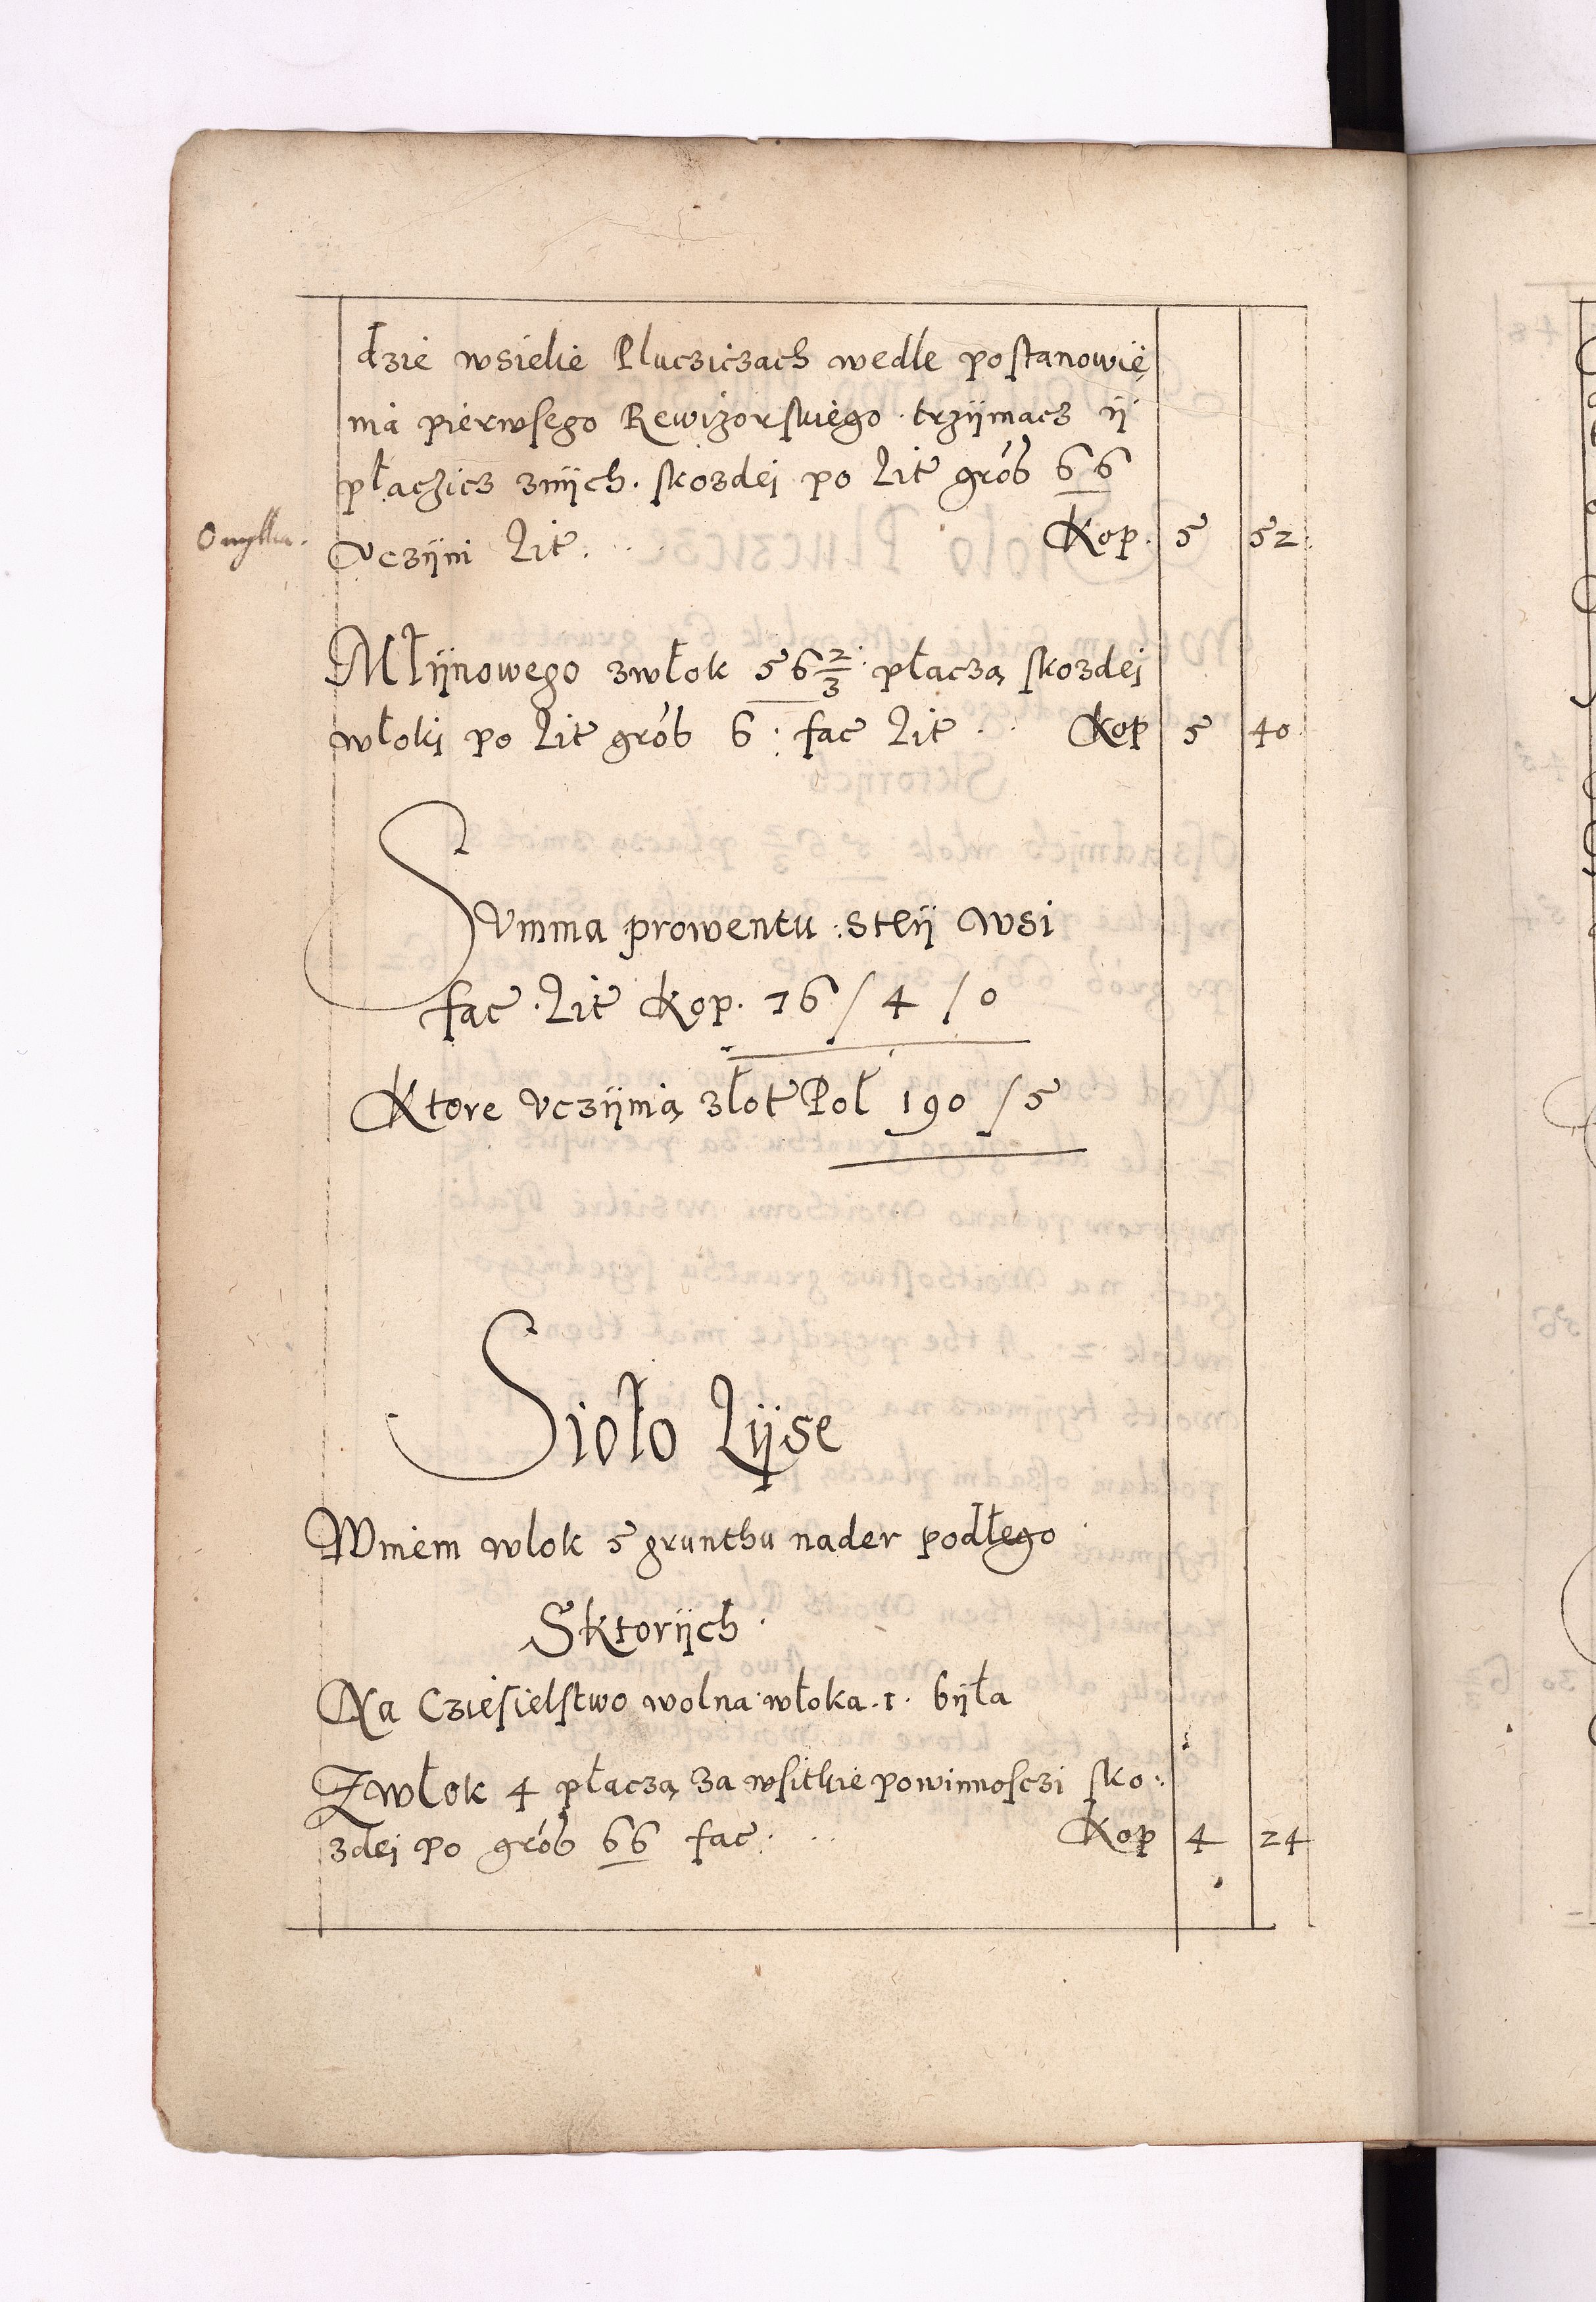 dzie wsielie Pluczićzach wedle postanowię
nia pierwsego Rewizorskiego trzijmacz ij
płaczicz znijch. skozdej po Lit grób 66
Omyłka. Vczijni Lit. Kop. 5 52
Młijnowego zwłok 56 2/3 płaczą skozdej
włoki po Lit grób 6: fac Lit Kop 5 40
Summa prowentu steij wsi
fac Lit Kop. 76/4/0
Ktore vczijnią złot Pol 190/5
Sioło Lijse
Wniem wlok 5 grunthu nader podłego
Sktorijch
Na Cziesielstwo wolna włoka 1. bijła
Zwłok 4 płaczą za wsitkie powinnosczi sko:
zdej po grób 66 fac: Kop 4 24